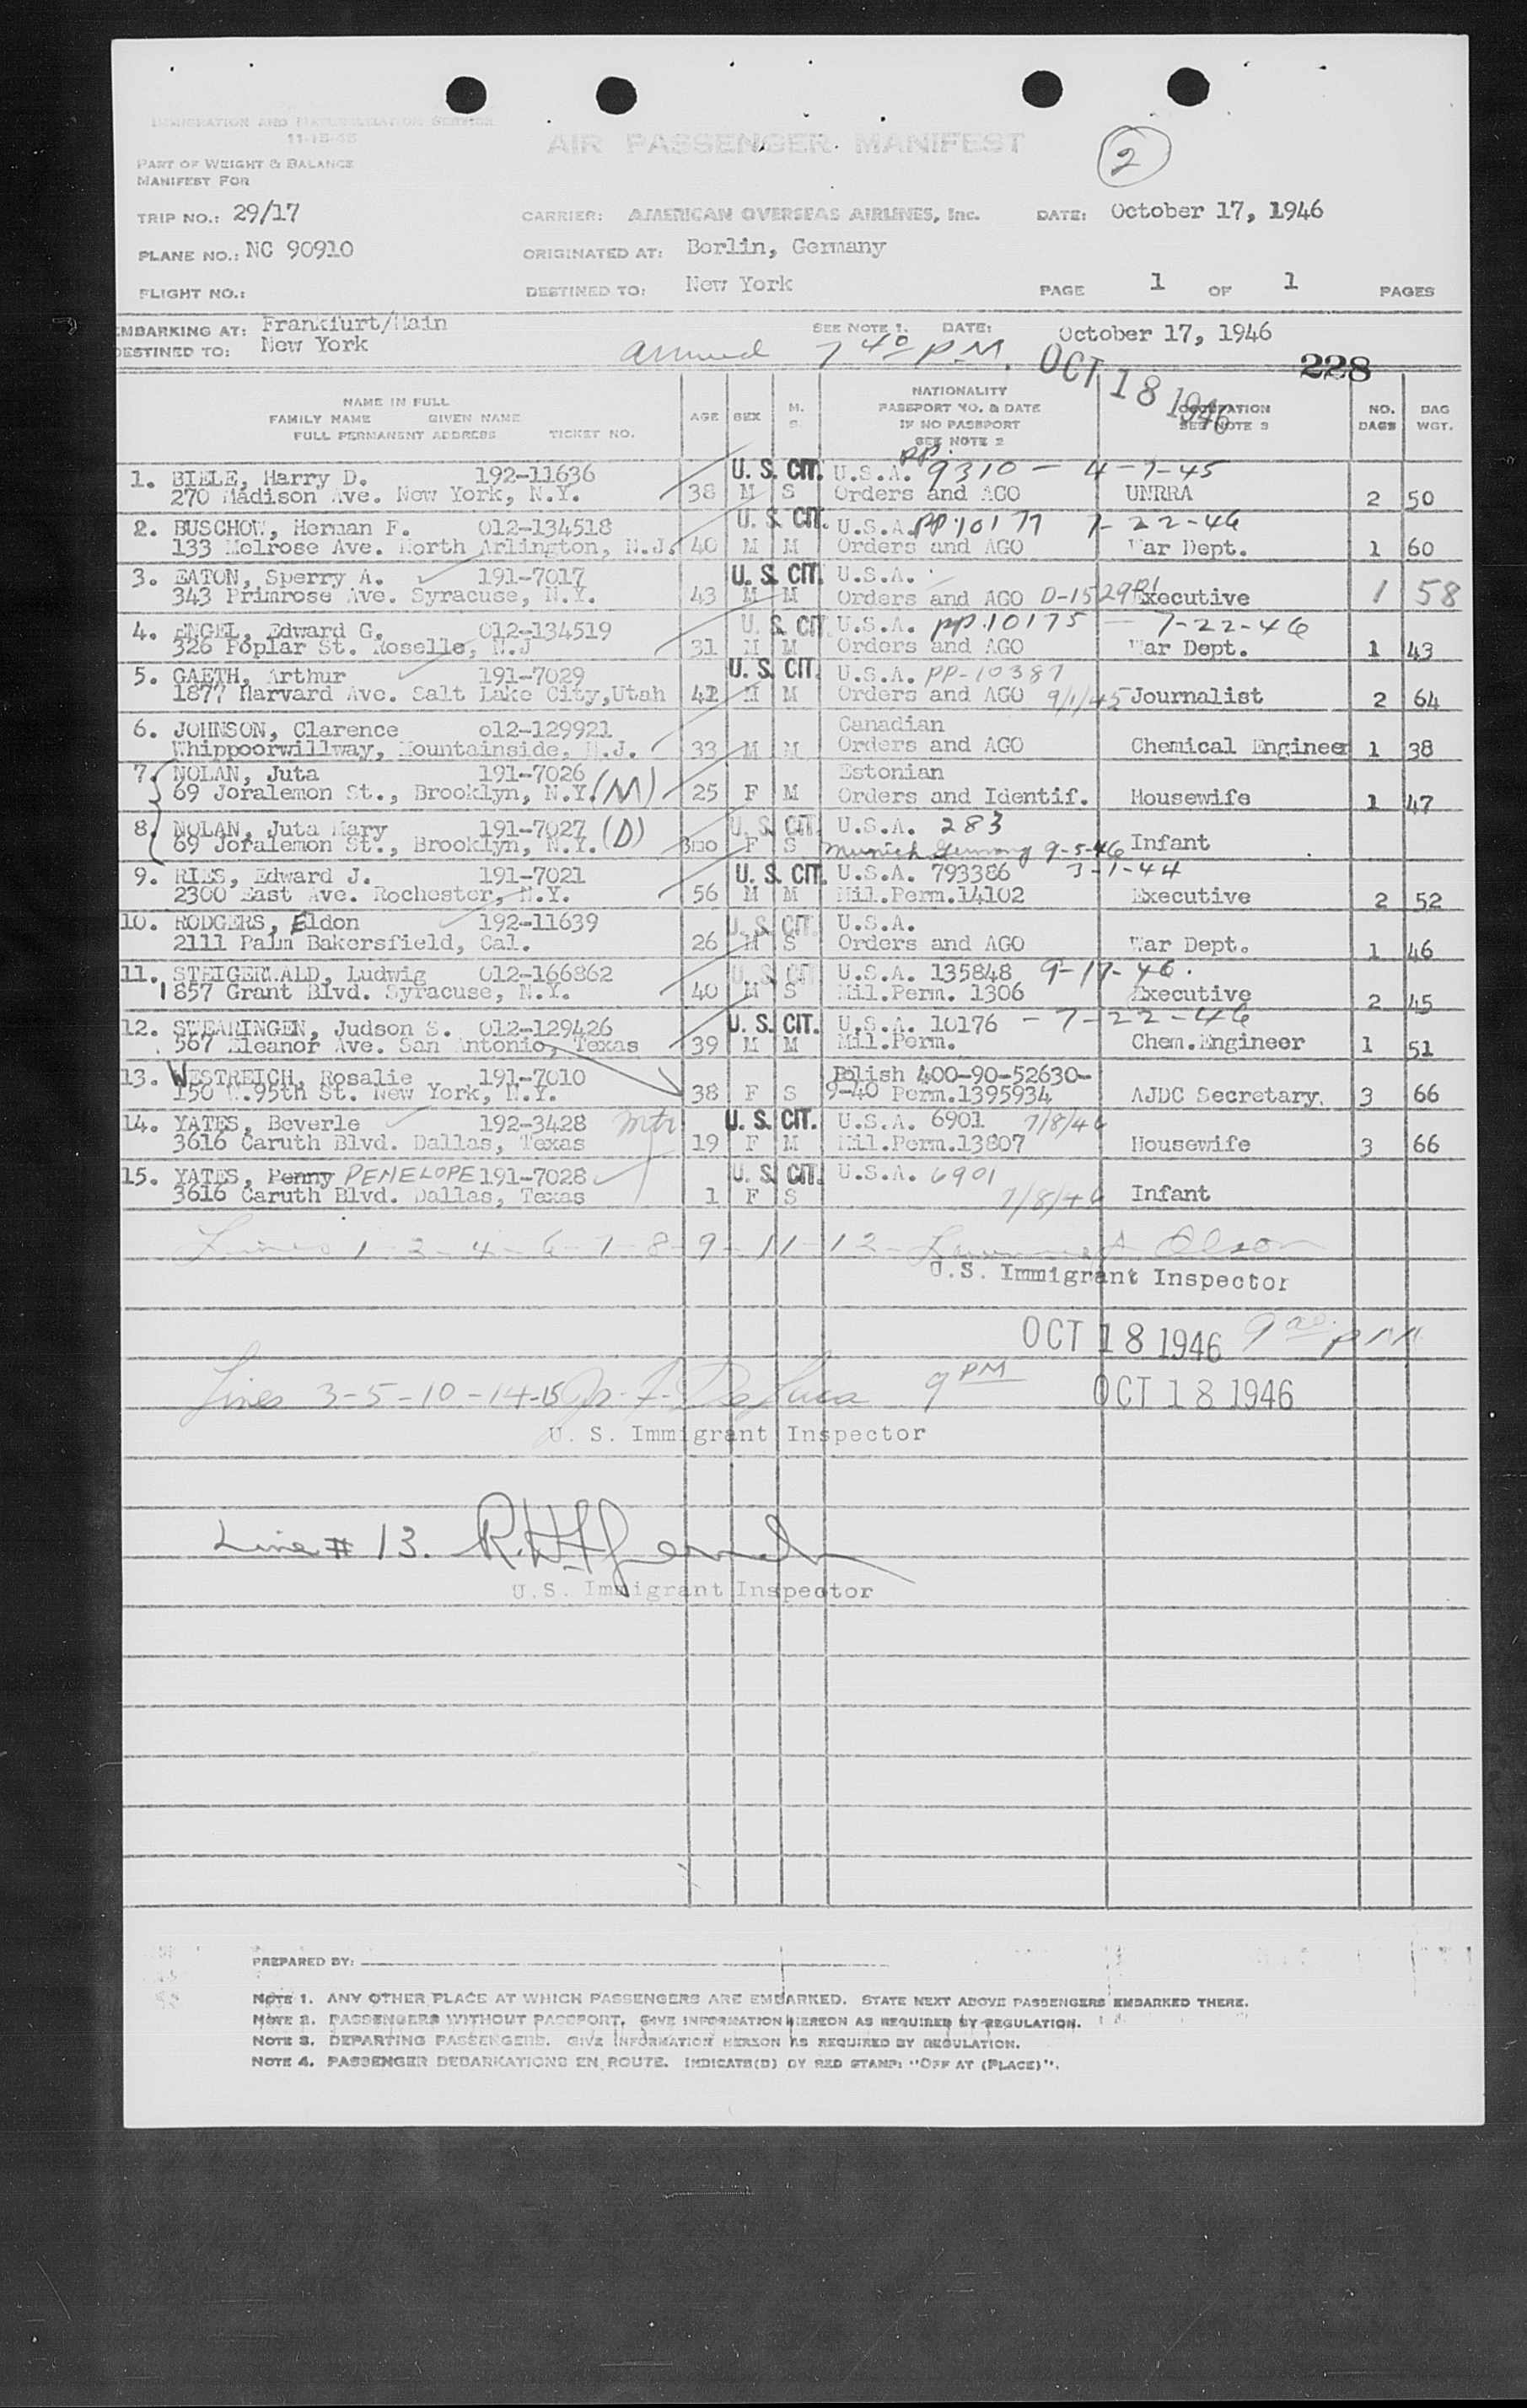 IMMIGRATION AND NATURALIZATION SERVICE
11-15-45
AIR PASSENGER MANIFEST
2
PART OF WEIGHT & BALANCE
MANIFEST FOR
TRIP NO.: 29/17 CARRIER: AMERICAN OVERSEAS AIRLINES, Inc. DATE: October 17, 1946
PLANE NO.: NC 90910 ORIGINATED AT: Berlin, Germany
FLIGHT NO.: DESTINED TO: New York PAGE 1 OF 1 PAGES
EMBARKING AT: Frankfurt/Main SEE NOTE 1. DATE: October 17, 1946
DESTINED TO: New York arrived 7 40 PM. OCT 18 1946 228
NAME IN FULL
FAMILY NAME GIVEN NAME
FULL PERMANENT ADDRESS TICKET NO. AGE SEX M. S. NATIONALITY PASSPORT NO. & DATE IF NO PASSPORT SEE NOTE 2 OCCUPATION SEE NOTE 3 NO. BAGS BAG WGT.
1. BIELE, Harry D. 192-11636 U. S. CIT. U.S.A. pp. 9310 - 4-7-45
270 Madison Ave. New York, N.Y. 38 M S Orders and AGO UNRRA 2 50
2. BUSCHOW, Herman F. 012-134518 U. S. CIT. U.S.A. pp. 10177 7-22-46
133 Melrose Ave. North Arlington, N.J. 40 M M Orders and AGO War Dept. 1 60
3. EATON, Sperry A. 191-7017 U. S. CIT. U.S.A.
343 Primrose Ave. Syracuse, N.Y. 43 M M Orders and AGO D-1529 Executive 1 58
4. ENGEL, Edward G. 012-134519 U. S. CIT. U.S.A. pp. 10175 - 7-22-46
326 Poplar St. Roselle, N.J 31 M M Orders and AGO War Dept. 1 43
5. GAETH, Arthur 191-7029 U. S. CIT. U.S.A. PP-10387
1877 Harvard Ave. Salt Lake City, Utah 41 M M Orders and AGO 9/1/45 Journalist 2 64
6. JOHNSON, Clarence o12-129921 Canadian
Whippoorwillway, Mountainside, N.J. 33 M M Orders and AGO Chemical Engineer 1 38
7. NOLAN, Juta 191-7026 Estonian
69 Joralemon St., Brooklyn, N.Y. (M) 25 F M Orders and Identif. Housewife 1 47
8. NOLAN, Juta Mary 191-7027 (D) U. S. CIT. U.S.A. 283
69 Joralemon St., Brooklyn, N.Y. 3mo F S Munich Germany 9-5-46 Infant
9. RIES, Edward J. 191-7021 U. S. CIT. U.S.A. 793386 3-1-44
2300 East Ave. Rochester, N.Y. 56 M M Mil.Perm.14102 Executive 2 52
10. RODGERS, Eldon 192-11639 U. S. CIT. U.S.A.
2111 Palm Bakersfield, Cal. 26 M S Orders and AGO War Dept. 1 46
11. STEIGERWALD, Ludwig 012-166862 U. S. CIT. U.S.A. 135848 9-17-46.
1857 Grant Blvd. Syracuse, N.Y. 40 M S Mil.Perm. 1306 Executive 2 45
12. SWEARINGEN, Judson S. 012-129426 U. S. CIT. U.S.A. 10176 - 7-22-46
567 Eleanor Ave. San Antonio, Texas 39 M M Mil.Perm. Chem.Engineer 1 51
13. WESTREICH, Rosalie 191-7010 Polish 400-90-52630-
150 W.95th St. New York, N.Y. 38 F S 9-40 Perm.1395934 AJDC Secretary. 3 66
14. YATES, Beverle 192-3428 U. S. CIT. U.S.A. 6901 7/8/46
3616 Caruth Blvd. Dallas, Texas 19 F M Mil.Perm.13807 Housewife 3 66
15. YATES, Penny PENELOPE 191-7028 U. S. CIT. U.S.A. 6901
3616 Caruth Blvd. Dallas, Texas 1 F S 7/8/46 Infant
Lines 1-2-4-6-7-8-9-11-12- Olson
U.S. Immigrant Inspector
OCT 18 1946 9 PM
Lines 3-5-10-14-15 9 PM OCT 18 1946
U. S. Immigrant Inspector
Line # 13.
U.S. Immigrant Inspector
PREPARED BY:
NOTE 1. ANY OTHER PLACE AT WHICH PASSENGERS ARE EMBARKED. STATE NEXT ABOVE PASSENGERS EMBARKED THERE.
NOTE 2. PASSENGERS WITHOUT PASSPORT. GIVE INFORMATION HEREON AS REQUIRED BY REGULATION.
NOTE 3. DEPARTING PASSENGERS. GIVE INFORMATION HEREON AS REQUIRED BY REGULATION.
NOTE 4. PASSENGER DEBARKATIONS EN ROUTE. INDICATE(D) BY RED STAMP: "OFF AT (PLACE)".